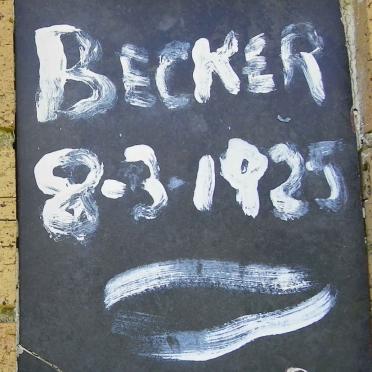 BECKER
8-3-1925